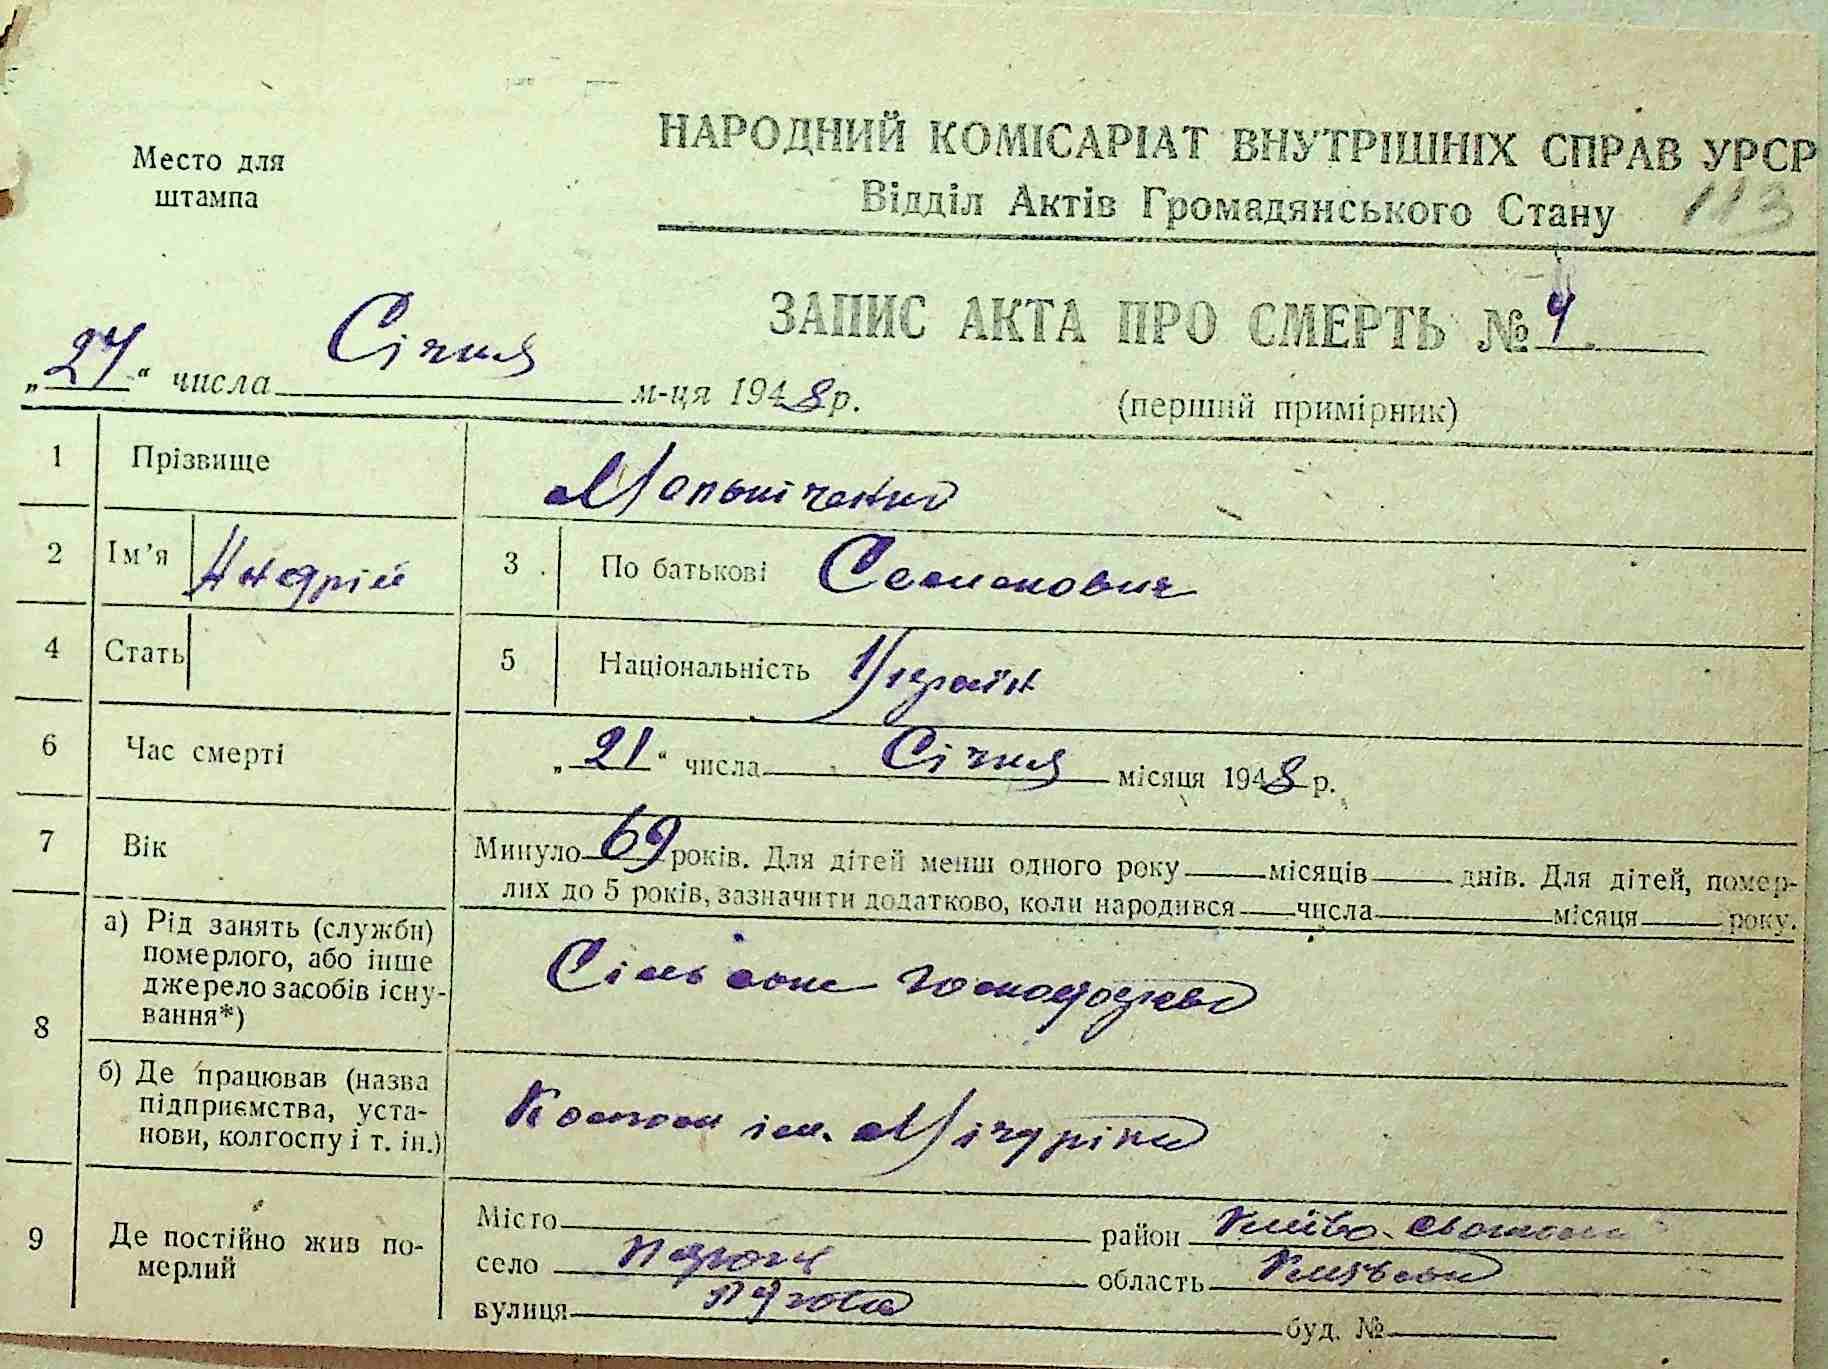 Место для
штампа
НАРОДНИЙ КОМІСАРІАТ ВНУТРІШНІХ СПРАВ УРСР
Відділ Актів Громадянського Стану 113
ЗАПИС АКТА ПРО СМЕРТЬ № 4
„27“ числа Січня м-ця 1948 р.
(перший примірник)
1 Прізвище Мельніченко
2 Ім’я Андрій 3 По батькові Семенович
4 Стать 5 Національність Україн
6 Час смерті „21“ числа Січня місяця 1948 р.
7 Вік Минуло 69 років. Для дітей менш одного року місяців днів. Для дітей, помер-
лих до 5 років, зазначити додатково, коли народився числа місяця року.
8 а) Рід занять (служби)
померлого, або інше
джерело засобів існу-
вання*)
Сільське господарство
б) Де працював (назва
підприємства, уста-
нови, колгоспу і т. ін.)
Колгосп ім. Мічуріна
9 Де постійно жив по-
мерлий
Місто район Києво-
село область Київська
вулиця буд. №